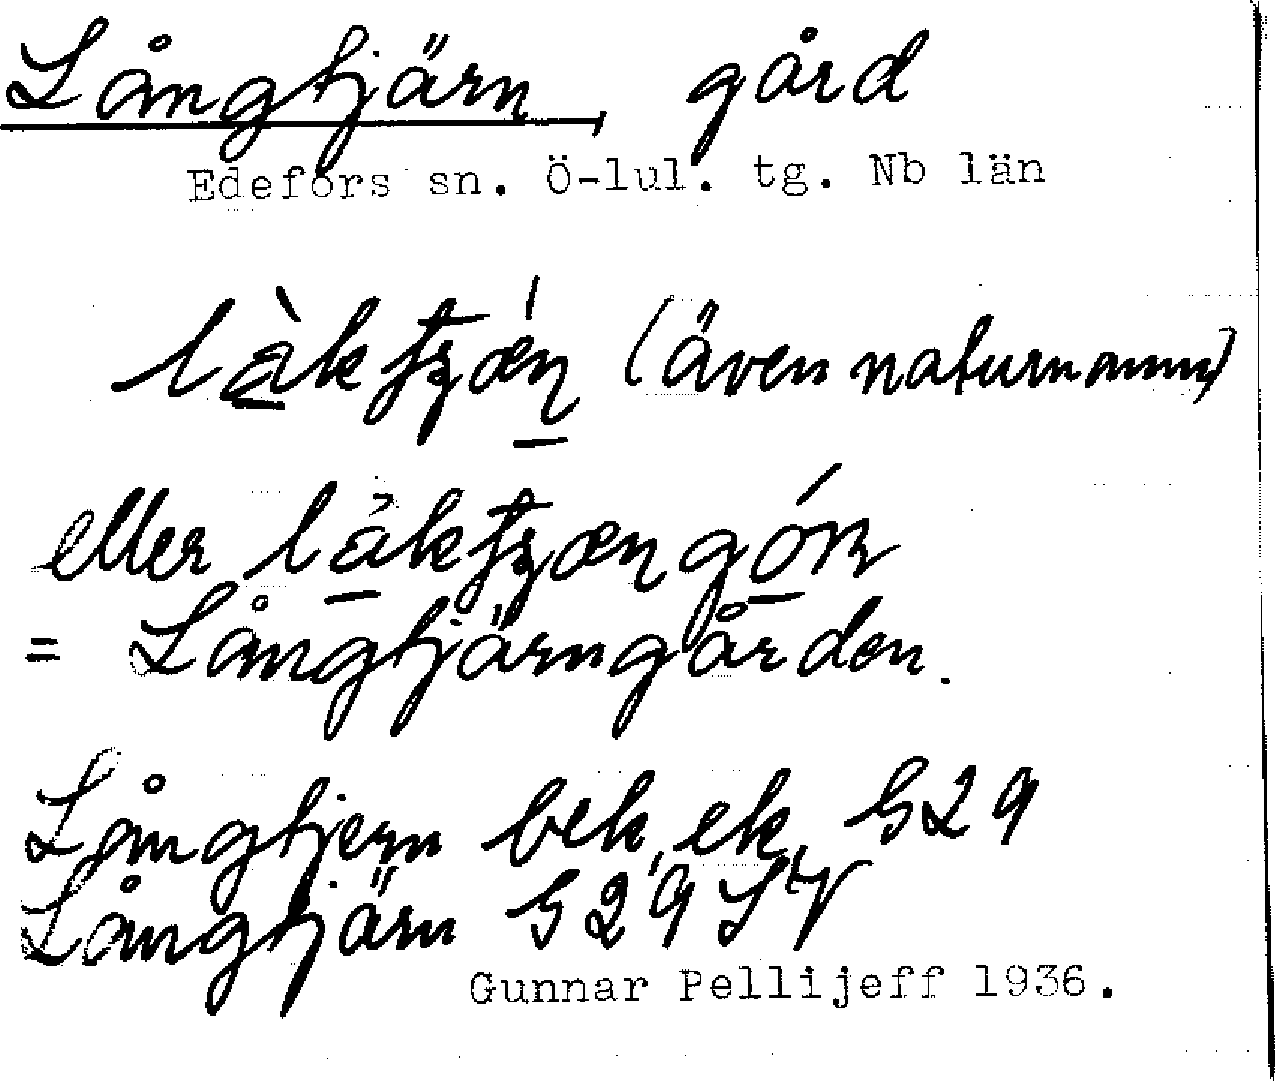 Långtjärn, gård
Edefors sn. Ö-lul. tg. Nb län
(även naturnamn)
eller
= Långtjärngården.
Långtjern bek, ek, G29
Långtjärn G29 SV
Gunnar Pellijeff 1936.